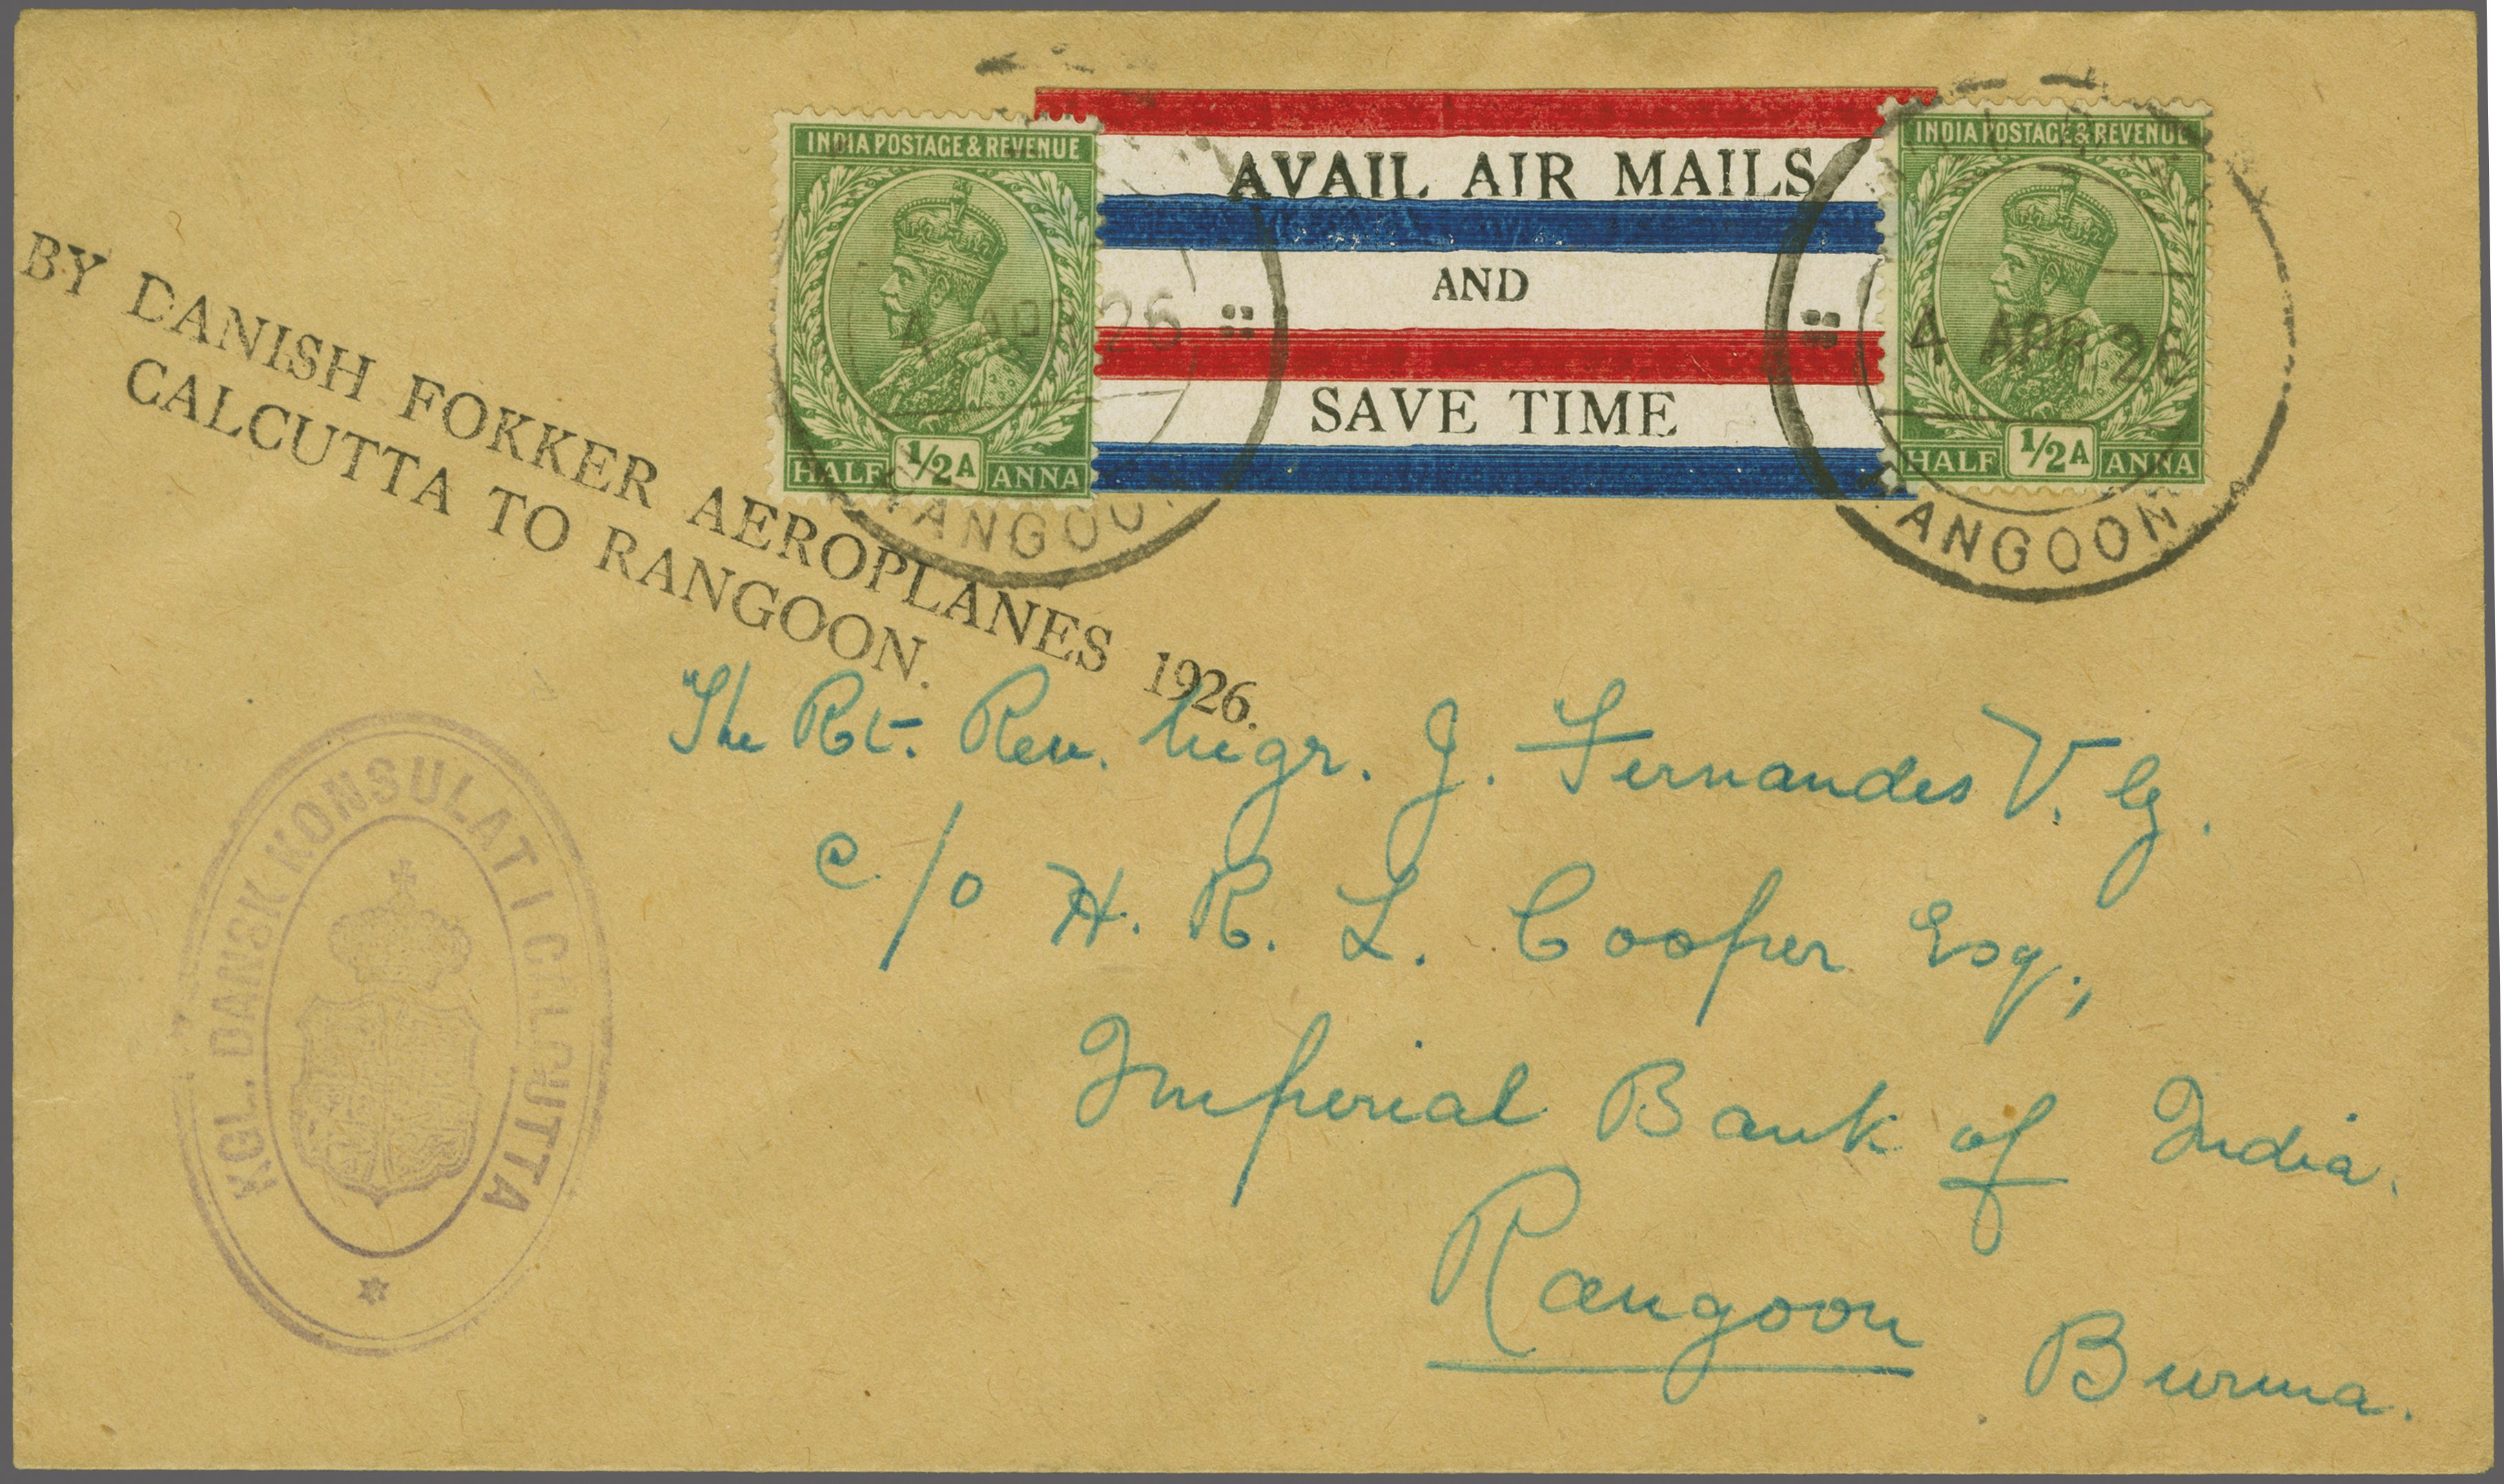 INDIA POSTAGE & REVENUE
HALF 1/2 A ANNA
AVAIL AIR MAILS
AND
SAVE TIME
INDIA POSTAGE & REVENUE
HALF 1/2 A ANNA
4 APR 26
RANGOON
4 APR 26
RANGOON
BY DANISH FOKKER AEROPLANES 1926.
CALCUTTA TO RANGOON.
KGL. DANSK KONSULAT I CALCUTTA
The Rt. Rev. Migr. J. Fernandes V. G.
c/o H. R. L. Cooper Esq.,
Imperial Bank of India.
Rangoon
Burma.